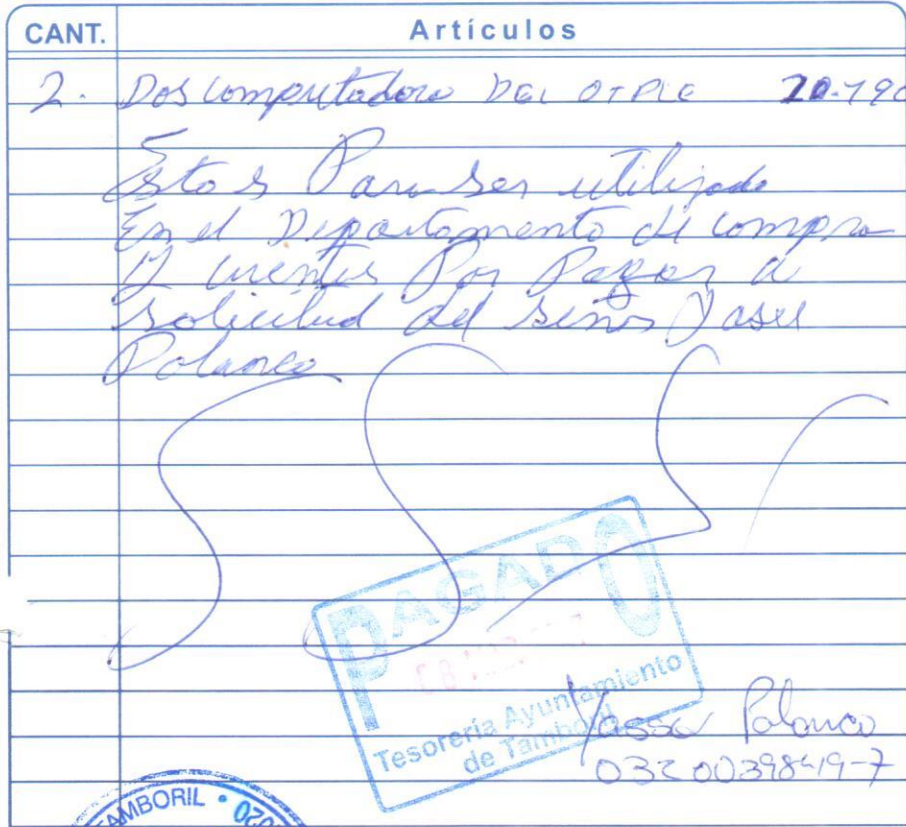 CANT. Artículos
2. Dos computadora DEL OTPLE 20.790
Estos Para ser utilizado
En el Departamento de compra
Y cuentas Por Pagar a
solicitud del señor Yasel
Polanco
PAGADO
Tesorería Ayuntamiento
de Tamboril
Yassel Polanco
032 0039849-7
TAMBORIL • 020